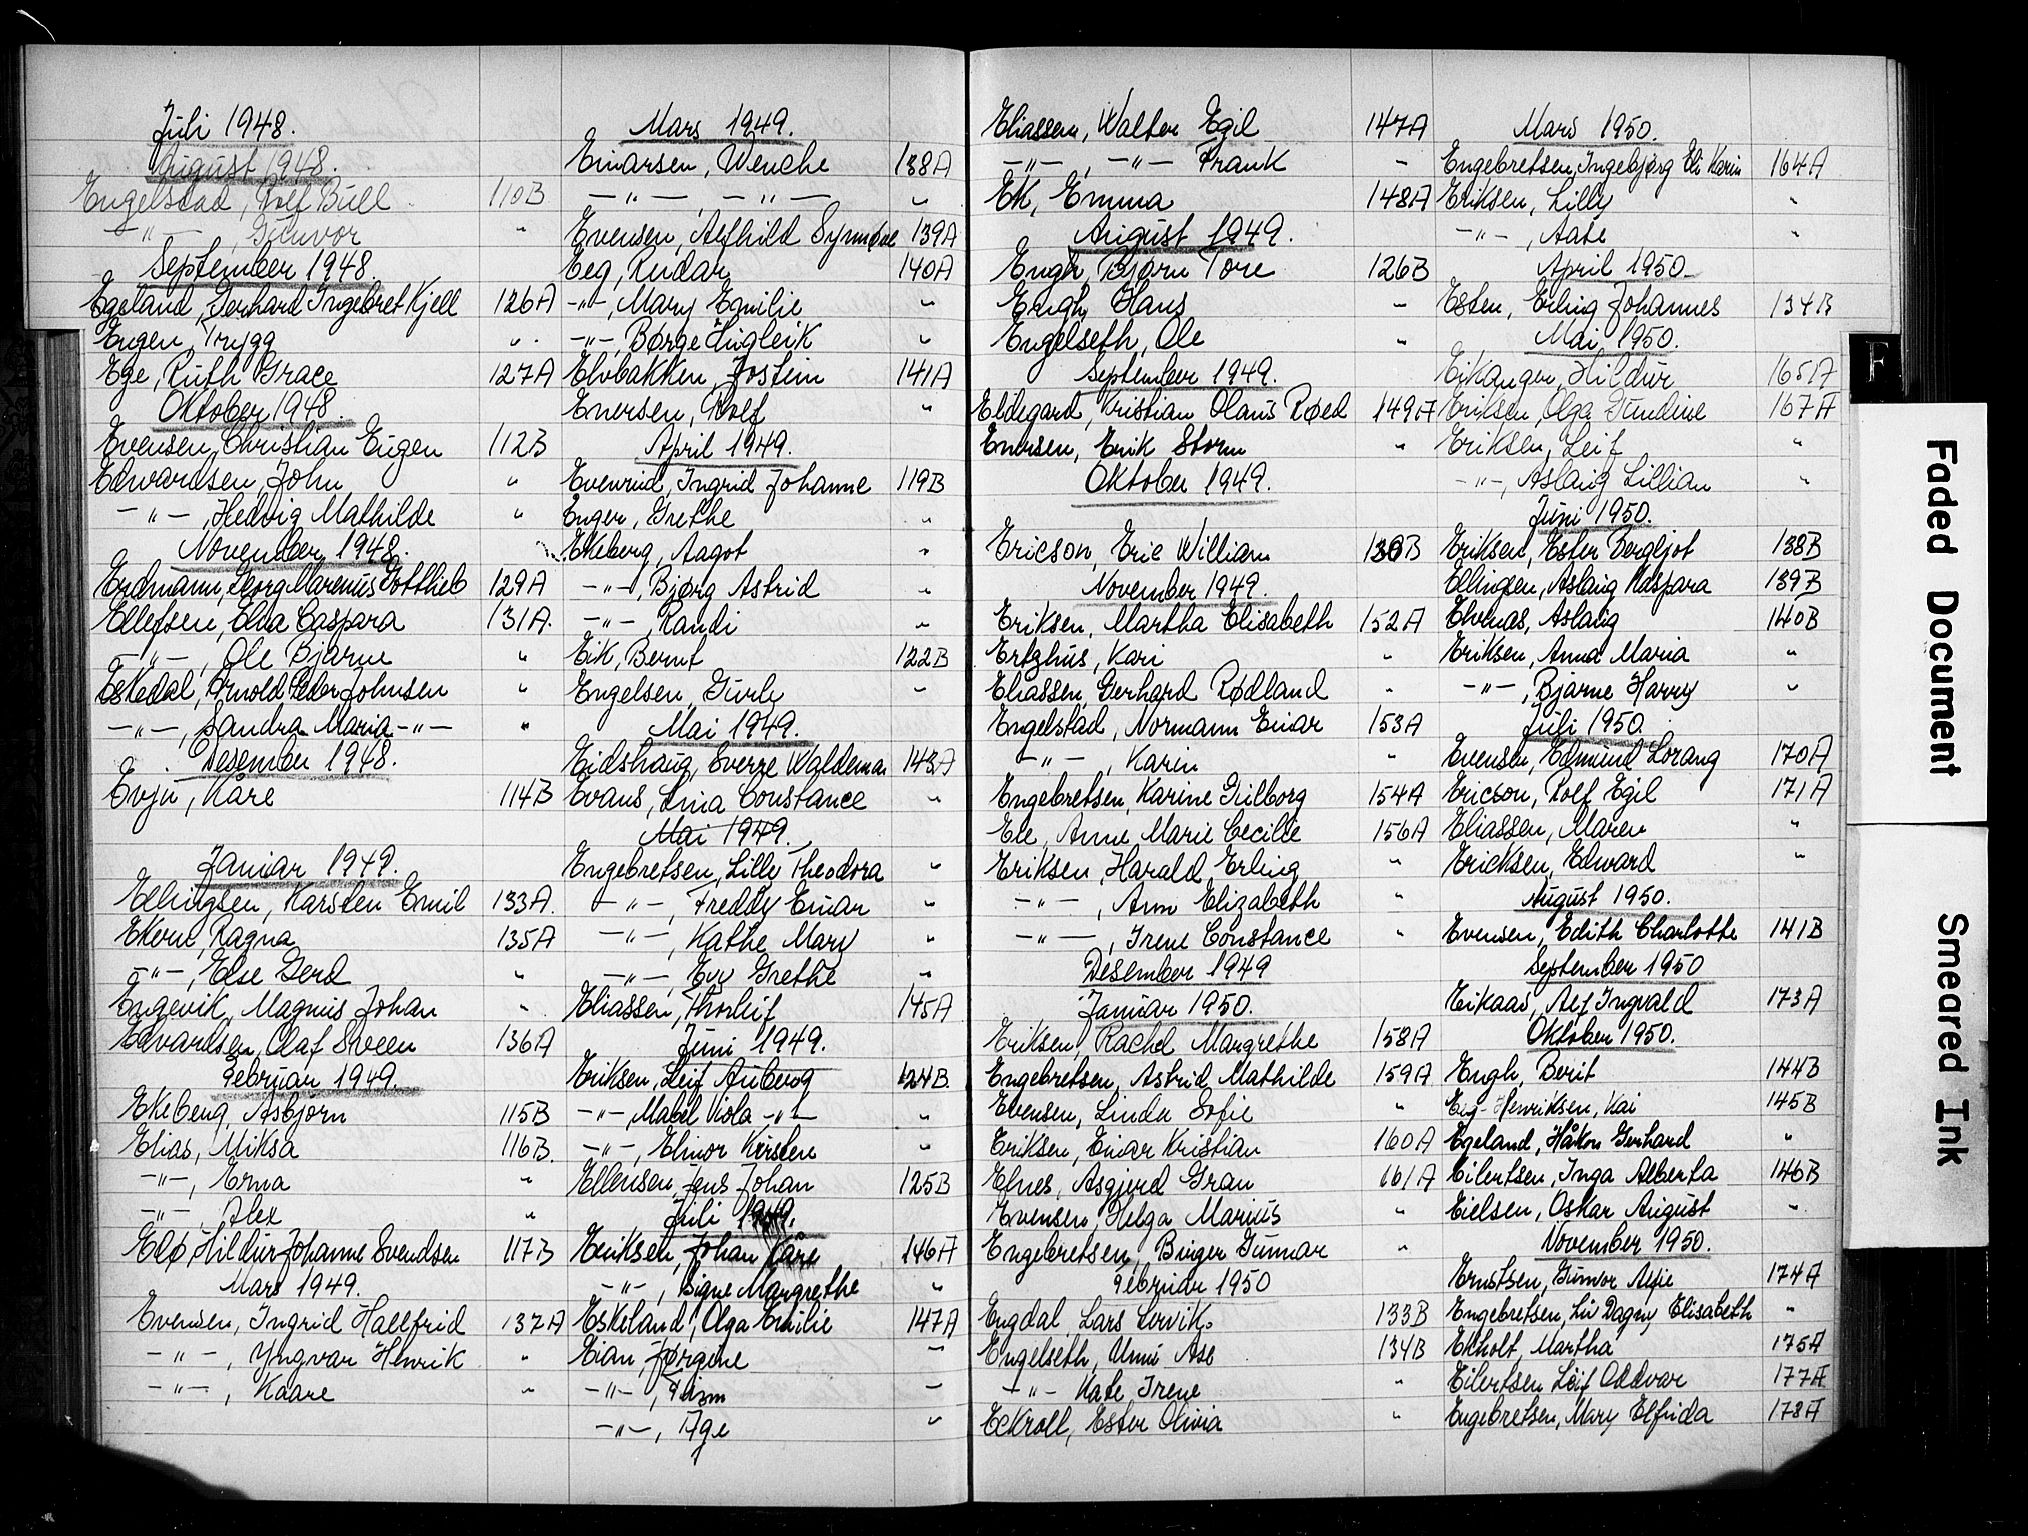 Juli 1948.
August 1948.
Engelstad, Rolf Bull 110B
-"-, Gunvor "
September 1948.
Egeland, Gerhard Ingebret Kjell 126A
Engen, Trygg "
Ege, Ruth Grace 127A
Oktober 1948.
Evensen, Christian Eugen 112B
Edwardsen, John "
-"-, Hedvig Mathilde "
November 1948.
Erdmann, Georg Marenius Gottlieb 129A
Ellefsen, Elva Caspara 131A.
-"-, Ole Bjarne "
Eskedal, Arnold Peder Johnsen "
-"-, Sandra Maria -"- "
Desember 1948.
Evju, Kåre 114B
Januar 1949.
Ellingsen, Karsten Emil 133A.
Ekern, Ragna 135A
-"-, Else Gerd "
Engevik, Magnus Johan "
Edvardsen, Olaf Sveen 136A
Februar 1949.
Ekeberg, Asbjørn 115B
Elias, Miksa 116B.
-"-, Erna "
-"-, Alex "
Elø, Hildur Johanne Svendsen 117B
Mars 1949.
Evensen, Ingrid Hallfrid 137A
-"-, Yngvar Henrik "
-"-, Kaare "
Mars 1949.
Einarsen, Wenche 138A
-"-, -"- "
Evensen, Alfhild Synnøve 139A
Eeg, Reidar 140A
-"-, Mary Emilie "
-"-, Børge Hugleik "
Elvbakken, Jostein 141A
Enersen, Rolf "
April 1949.
Evenrud, Ingrid Johanne 119B
Enger, Grethe "
Ekeberg, Aagot "
-"-, Bjørg Astrid "
-"-, Randi "
Eik, Bernt 122B
Engelsen, Gurli "
Mai 1949.
Eidshaug, Sverre Waldemar 143A
Evans, Lina Constance "
Mai 1949.
Engebretsen, Lilly Theodora "
-"-, Freddy Einar "
-"-, Kathe Mary "
-"-, Evy Grethe "
Eliassen, Thorleif 145A
Juni 1949.
Eriksen, Leif Auberg 124B.
-"-, Mabel Viola -"- "
-"-, Elinor Kirsten "
Ellensen, Jens Johan 125B
Juli 1949.
Eriksen, Johan Kåre 146A
-"-, Signe Margrethe "
Eskeland, Olga Emilie 147A
Eian, Jørgine "
-"-, Finn "
-"-, Åge "
Eliassen, Walter Egil 147A
-"-, -"- Frank "
Ek, Emma 148A
August 1949.
Engh, Bjørn Tore 126B
Engh, Hans "
Engelseth, Ole "
September 1949.
Eldegard, Kristian Olaus Røed 149A
Enersen, Erik Storm "
Oktober 1949.
Ericson, Eric William 130B
November 1949.
Eriksen, Martha Elisabeth 152A
Ertzhus, Kari "
Eliassen, Gerhard Rødland "
Engelstad, Normann Einar 153A
-"-, Karin "
Engebretsen, Karine Gulborg 154A
Ele, Anne Marie Cecilie 156A
Eriksen, Harald Erling "
-"-, Ann Elizabeth "
-"-, Irene Constance "
Desember 1949
Januar 1950.
Eriksen, Rachel Margrethe 158A
Engebretsen, Astrid Mathilde 159A
Evensen, Linda Sofie "
Eriksen, Einar Kristian 160A
Elnes, Asgjerd Gran 161A
Evensen, Helga Marius "
Engebretsen, Birger Gunnar "
Februar 1950
Engdal, Lars Lervik. 133B
Engelseth, Unni Åse 134B
-"- Kate Irene "
Eckroll, Ester Olivia "
Mars 1950.
Engebretsen, Ingebjørg Eli Karin 164A
Eriksen, Lilly "
-"-, Aase "
April 1950.
Esten, Erling Johannes 134B
Mai 1950.
Eikanger, Hildur 165A
Eriksen, Olga Gundine 167A
Eriksen, Leif "
-"-, Aslaug Lillian "
Juni 1950.
Eriksen, Ester Bergljot 138B
Ellingsen, Aslaug Kaspara 139B
Elvenas, Aslaug 140B
Eriksen, Anna Maria "
-"-, Bjarne Harry "
Juli 1950.
Evensen, Edmund Lorang 170A
Ericson, Rolf Egil 171A
Eliassen, Maren "
Ericksen, Edward "
August 1950.
Evensen, Edith Charlotte 141B
September 1950
Eikaas, Alf Ingvald 173A
Oktober 1950.
Engh, Berit 144B
Eeg-Henriksen, Kai 145B
Egeland, Håkon Gerhard "
Eilertsen, Inga Alberta 146B
Eielsen, Oskar August "
November 1950.
Ernstsen, Gunvor Alfie 174A
Engebretsen, Liv Dagny Elisabeth "
Ekholt, Martha 175A
Eilertsen Leif Oddvar 177A
Engebretsen, Mary Elfrida 178A
F
Faded Document
Smeared Ink